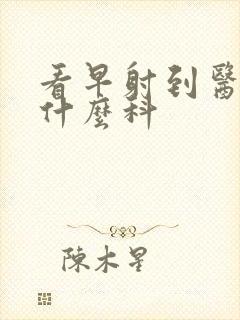 看早射到醫
什麼科
陳木星